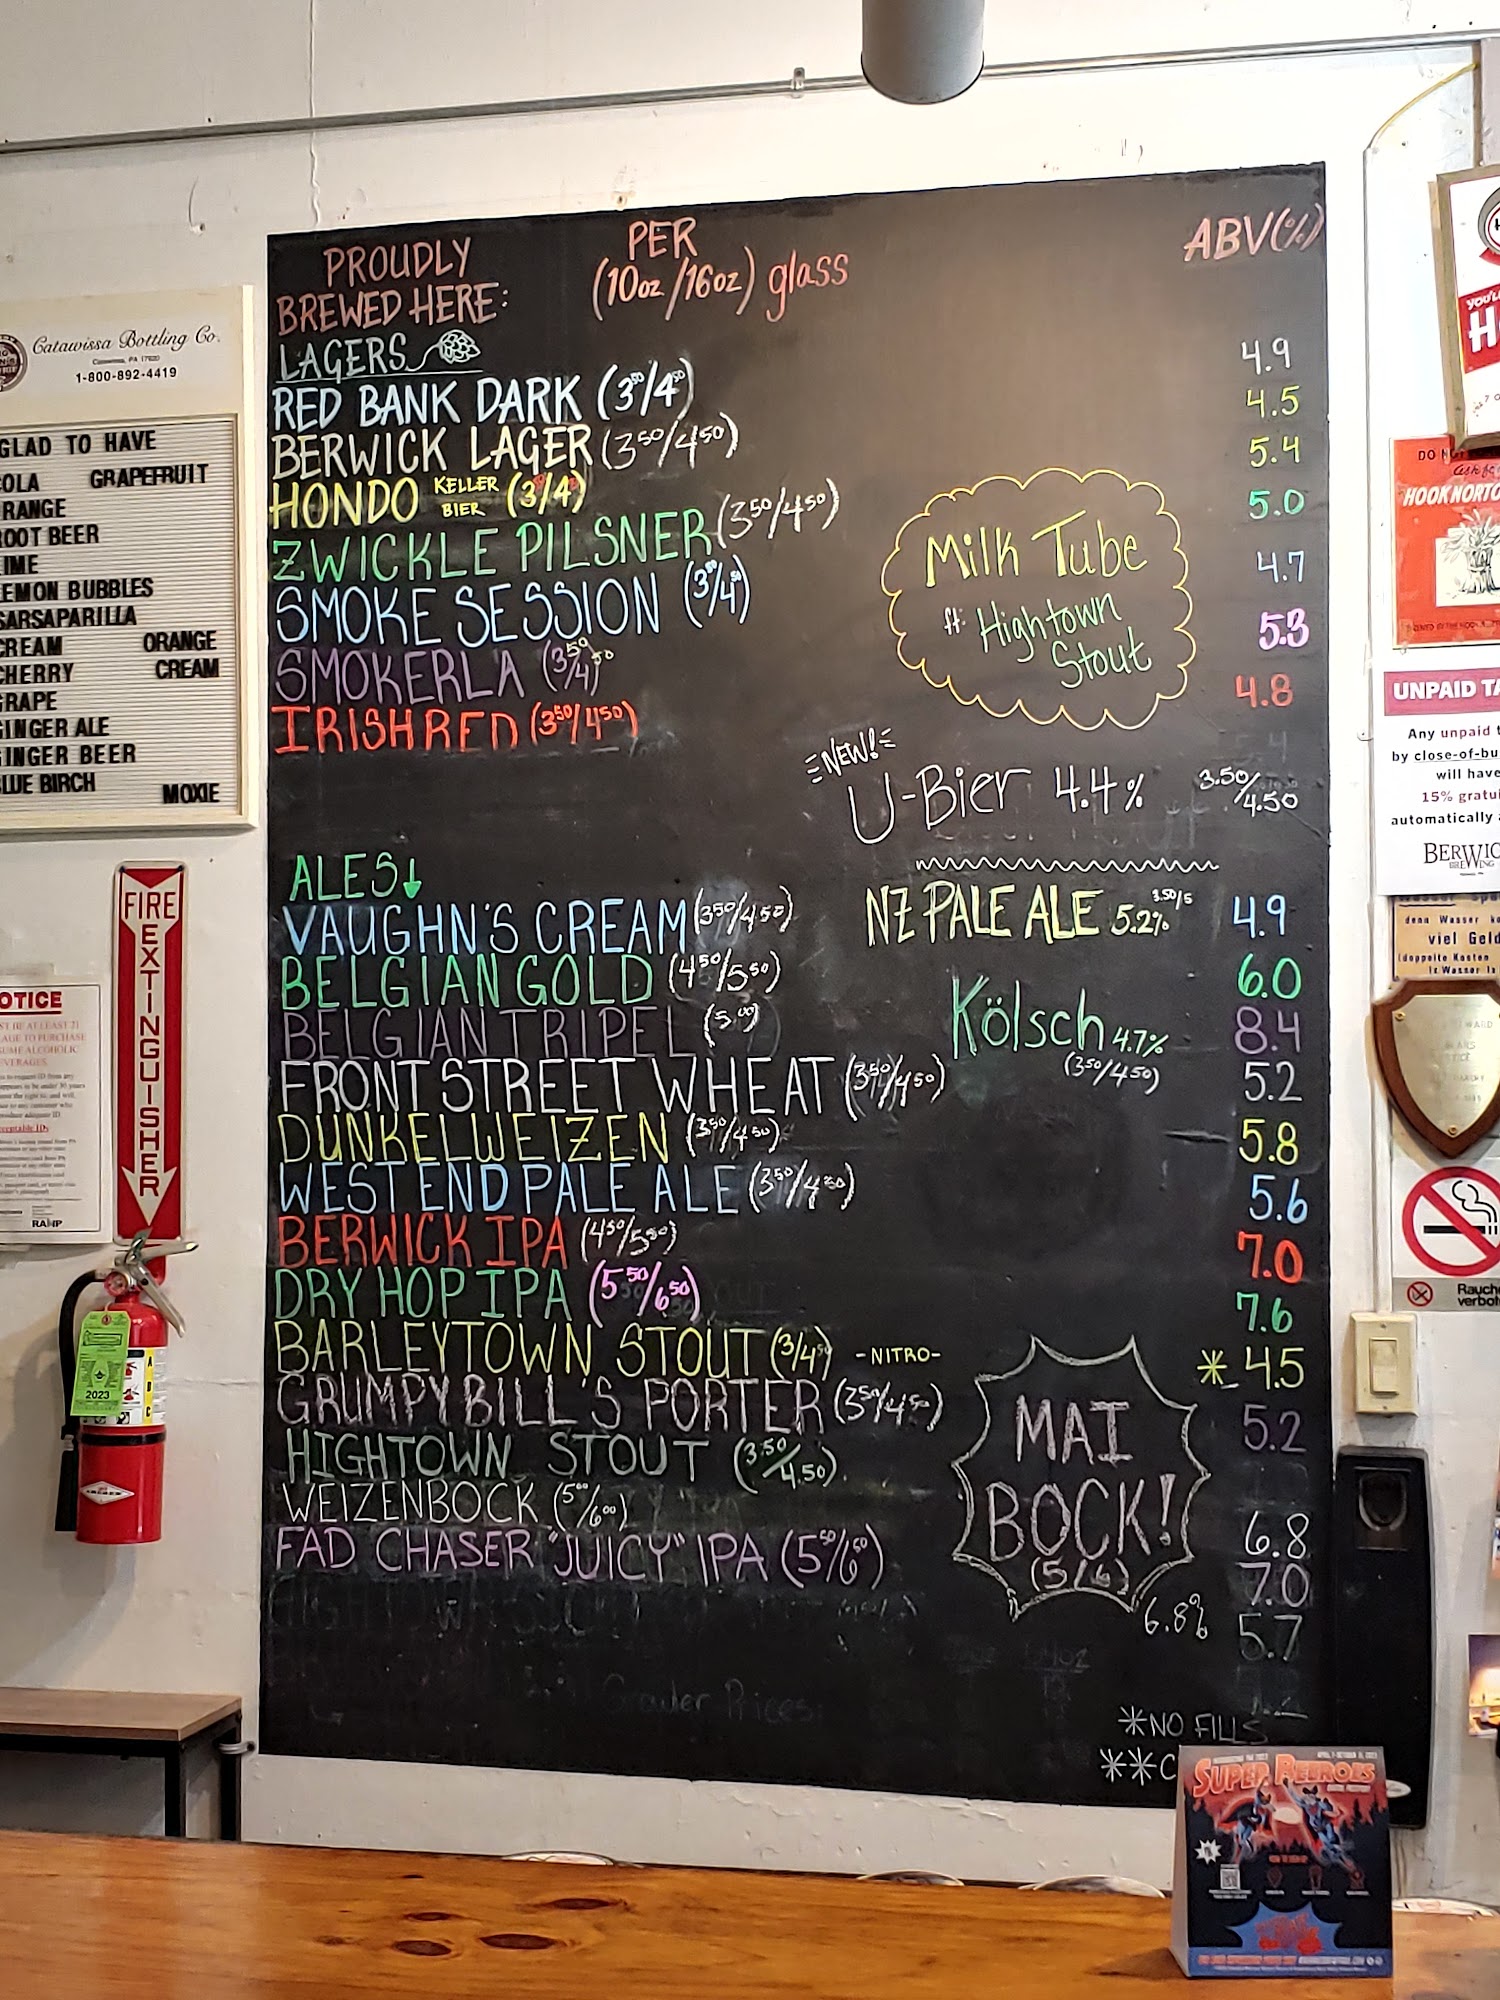 PROUDLY
BREWED HERE:
PER
(10oz/16oz) glass
ABV(%)
LAGERS
RED BANK DARK (3⁵⁰/4⁵⁰) 4.9
BERWICK LAGER (3⁵⁰/4⁵⁰) 4.5
HONDO KELLER BIER (3/4) 5.4
ZWICKLE PILSNER (3⁵⁰/4⁵⁰) 5.0
SMOKE SESSION (3⁵⁰/4⁵⁰) 4.7
SMOKERLA (3⁵⁰/4⁵⁰) 5.3
IRISH RED (3⁵⁰/4⁵⁰) 4.8
Milk Tube
ft: Hightown
Stout
NEW!
U-Bier 4.4% 3.50/4.50
ALES↓
VAUGHN'S CREAM (3⁵⁰/4⁵⁰) 4.9
BELGIAN GOLD (4⁵⁰/5⁵⁰) 6.0
BELGIAN TRIPEL (5⁰⁰) 8.4
FRONT STREET WHEAT (3⁵⁰/4⁵⁰) 5.2
DUNKELWEIZEN (3⁵⁰/4⁵⁰) 5.8
WEST END PALE ALE (3⁵⁰/4⁵⁰) 5.6
BERWICK IPA (4⁵⁰/5⁵⁰) 7.0
DRY HOP IPA (5⁵⁰/6⁵⁰) 7.6
BARLEYTOWN STOUT (3/4⁵⁰) -NITRO- * 4.5
GRUMPY BILL'S PORTER (3⁵⁰/4⁵⁰) 5.2
HIGHTOWN STOUT (3.50/4.50)
WEIZENBOCK (5⁰⁰/6⁰⁰) 6.8
FAD CHASER "JUICY" IPA (5⁵⁰/6⁵⁰) 7.0
5.7
NZ PALE ALE 5.2% 3.50/5
Kölsch 4.7%
(3⁵⁰/4⁵⁰)
MAI
BOCK!
(5/6)
6.8%
Growler Prices:
*NO FILLS
**C
Catawissa Bottling Co.
Catawissa, PA 17820
1-800-892-4419
GLAD TO HAVE
OLA GRAPEFRUIT
RANGE
ROOT BEER
IME
LEMON BUBBLES
SARSAPARILLA
CREAM ORANGE
CHERRY CREAM
GRAPE
GINGER ALE
GINGER BEER
BLUE BIRCH MOXIE
FIRE
EXTINGUISHER
OTICE
RAMP
2023
HOOK NORTO
UNPAID TA
Any unpaid t
by close-of-bu
will have
15% gratui
automatically
BERWIC
BREWING
denn Wasser ko
viel Geld
(doppelte Kosten
Rauche
verbot
SUPER